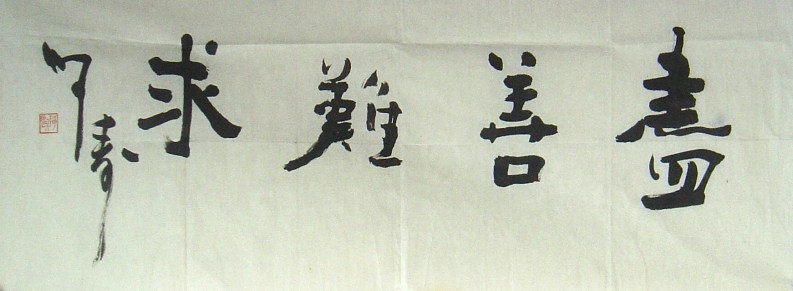 盡善難求